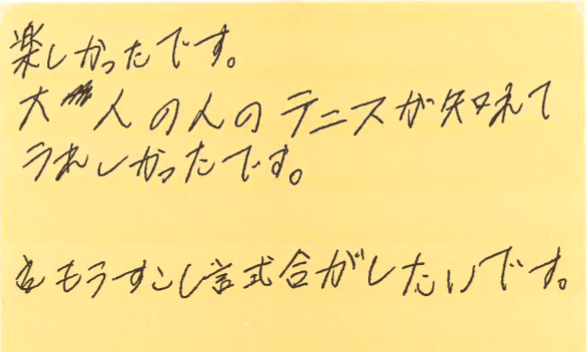 楽しかったです。
大人の人のテニスが知れて
うれしかったです。
もうすこし試合がしたいです。